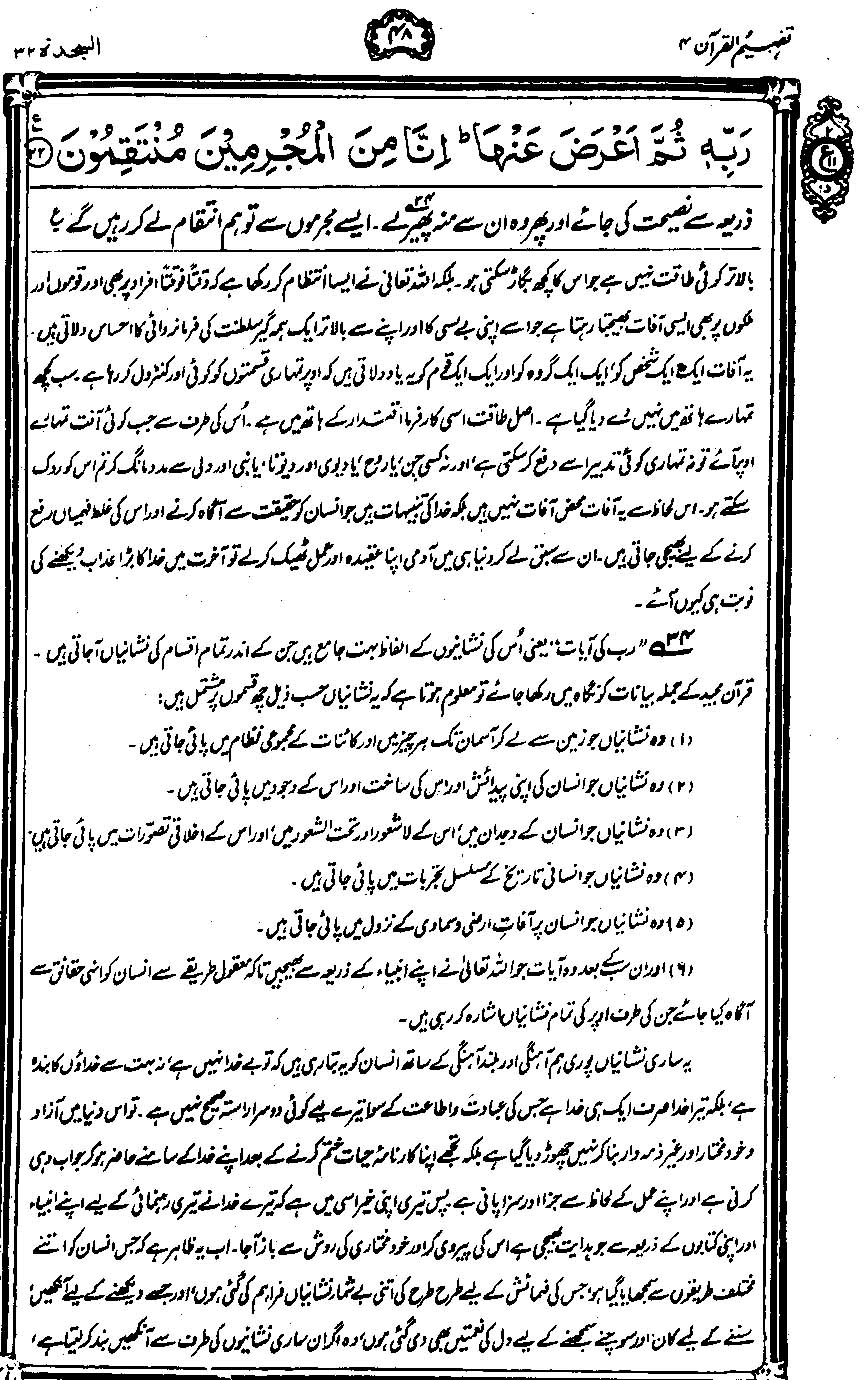 تفہیم القرآن ۴
۴۸
السجدۃ ۳۲
رَبِّهٖ ثُمَّ اَعْرَضَ عَنْهَا ؕ اِنَّا مِنَ الْمُجْرِمِيْنَ مُنْتَقِمُوْنَ ﴿۲۲﴾ ع
ذریعہ سے نصیحت کی جائے اور پھر وہ ان سے منہ پھیر لے۔ ۳۴ ایسے مجرموں سے تو ہم انتقام لے کر رہیں گے ع
بالاتر کوئی طاقت نہیں ہے جو اس کا کچھ بگاڑ سکتی ہو۔ بلکہ اللہ تعالیٰ نے ایسا انتظام کر رکھا ہے کہ وقتاً فوقتاً افراد پر بھی اور قوموں اور
ملکوں پر بھی ایسی آفات بھیجتا رہتا ہے جو اسے اپنی بے بسی کا اور اپنے سے بالاتر ایک ہمہ گیر سلطنت کی فرمانروائی کا احساس دلاتی ہیں۔
یہ آفات ایک ایک شخص کو، ایک ایک گروہ کو اور ایک ایک قوم کو یہ یاد دلاتی ہیں کہ اوپر تمہاری قسمتوں کو کوئی اور کنٹرول کر رہا ہے۔ سب کچھ
تمہارے ہاتھ میں نہیں دے دیا گیا ہے۔ اصل طاقت اسی کار فرما اقتدار کے ہاتھ میں ہے۔ اُس کی طرف سے جب کوئی آفت تمہارے
اوپر آئے تو نہ تمہاری کوئی تدبیر اسے دفع کر سکتی ہے، اور نہ کسی جن، یا روح، یا دیوی اور دیوتا، یا نبی اور ولی سے مدد مانگ کر تم اس کو روک
سکتے ہو۔ اس لحاظ سے یہ آفات محض آفات نہیں ہیں بلکہ خدا کی تنبیہات ہیں جو انسان کو حقیقت سے آگاہ کرنے اور اس کی غلط فہمیاں رفع
کرنے کے لیے بھیجی جاتی ہیں۔ ان سے سبق لے کر دنیا ہی میں آدمی اپنا عقیدہ اور عمل ٹھیک کر لے تو آخرت میں خدا کا بڑا عذاب دیکھنے کی
نوبت ہی کیوں آئے۔
۳۴؎ ”رب کی آیات“ یعنی اُس کی نشانیوں کے الفاظ بہت جامع ہیں جن کے اندر تمام اقسام کی نشانیاں آجاتی ہیں۔
قرآن مجید کے جملہ بیانات کو نگاہ میں رکھا جائے تو معلوم ہوتا ہے کہ یہ نشانیاں حسب ذیل چھ قسموں پر مشتمل ہیں:
(۱) وہ نشانیاں جو زمین سے لے کر آسمان تک ہر چیز میں اور کائنات کے مجموعی نظام میں پائی جاتی ہیں۔
(۲) وہ نشانیاں جو انسان کی اپنی پیدائش اور اس کی ساخت اور اس کے وجود میں پائی جاتی ہیں۔
(۳) وہ نشانیاں جو انسان کے وجدان میں، اس کے لاشعور اور تحت الشعور میں، اور اس کے اخلاقی تصوّرات میں پائی جاتی ہیں۔
(۴) وہ نشانیاں جو انسانی تاریخ کے مسلسل تجربات میں پائی جاتی ہیں۔
(۵) وہ نشانیاں جو انسان پر آفاتِ ارضی و سماوی کے نزول میں پائی جاتی ہیں۔
(۶) اور ان سب کے بعد وہ آیات جو اللہ تعالیٰ نے اپنے انبیاء کے ذریعہ سے بھیجیں تاکہ معقول طریقے سے انسان کو انہی حقائق سے
آگاہ کیا جائے جن کی طرف اوپر کی تمام نشانیاں اشارہ کر رہی ہیں۔
یہ ساری نشانیاں پوری ہم آہنگی اور بلند آہنگی کے ساتھ انسان کو یہ بتا رہی ہیں کہ تو بے خدا نہیں ہے، نہ بہت سے خداؤں کا بندہ
ہے، بلکہ تیرا خدا صرف ایک ہی خدا ہے جس کی عبادت و اطاعت کے سوا تیرے لیے کوئی دوسرا راستہ صحیح نہیں ہے۔ تو اس دنیا میں آزاد و
خود مختار اور غیر ذمہ دار بنا کر نہیں چھوڑ دیا گیا ہے بلکہ تجھے اپنا کارنامۂ حیات ختم کرنے کے بعد اپنے خدا کے سامنے حاضر ہو کر جواب دہی
کرنی ہے اور اپنے عمل کے لحاظ سے جزا اور سزا پانی ہے۔ پس تیری اپنی خیر اسی میں ہے کہ تیرے خدا نے تیری رہنمائی کے لیے اپنے انبیاء
اور اپنی کتابوں کے ذریعہ سے جو ہدایت بھیجی ہے اس کی پیروی کر اور خود مختاری کی روش سے باز آجا۔ اب یہ ظاہر ہے کہ جس انسان کو اتنے
مختلف طریقوں سے سمجھایا گیا ہو، جس کی فہمائش کے لیے طرح طرح کی اتنی بے شمار نشانیاں فراہم کی گئی ہوں، اور جسے دیکھنے کے لیے آنکھیں،
سننے کے لیے کان، اور سوچنے سمجھنے کے لیے دل کی نعمتیں بھی دی گئی ہوں، وہ اگر ان ساری نشانیوں کی طرف سے آنکھیں بند کر لیتا ہے،